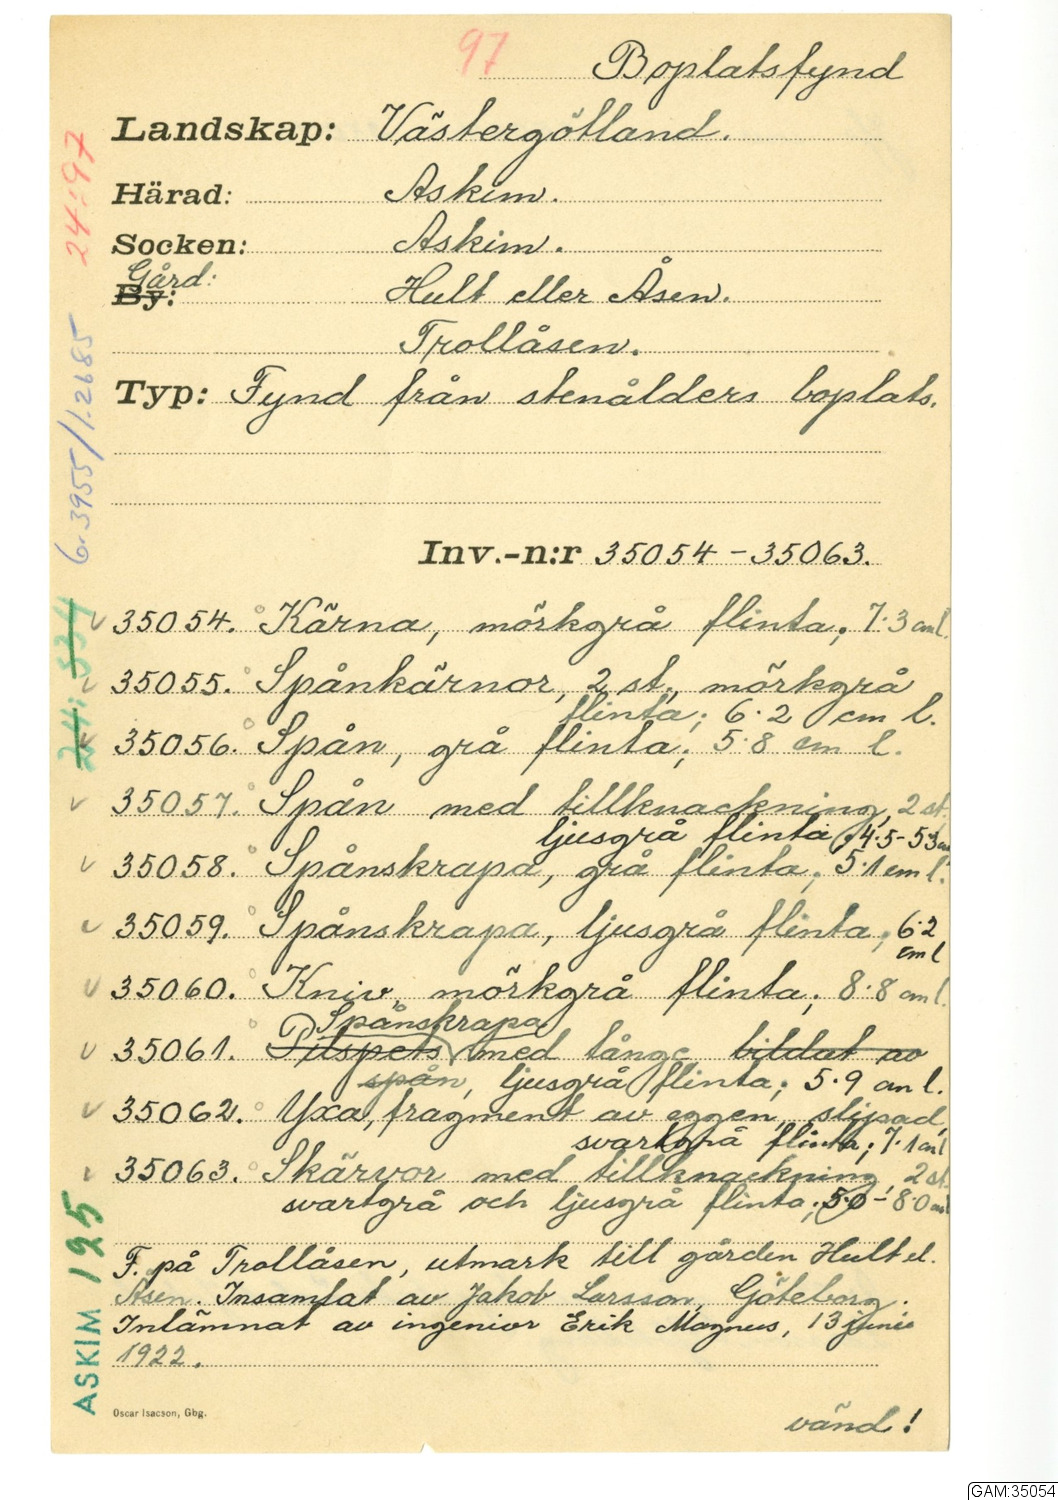 97
Boplatsfynd
Landskap: Västergötland.
Härad: Askim.
Socken: Askim.
Gård:
By: Hult eller Åsen.
Trollåsen.
Typ: Fynd från stenålders boplats.
Inv.-n:r 35054 – 35063.
35054. Kärna, mörkgrå flinta; 7.3 cm l.
35055. Spånkärnor, 2 st., mörkgrå
flinta; 6.2 cm l.
35056. Spån, grå flinta; 5.8 cm l.
35057. Spån med tillknackning, 2 st.
ljusgrå flinta; 4.5-5.3 cm
35058. Spånskrapa, grå flinta; 5.1 cm l.
35059. Spånskrapa, ljusgrå flinta; 6.2
cm l
35060. Kniv, mörkgrå flinta; 8.8 cm l.
Spånskrapa
35061. Pilspets med tånge bildat av
spån, ljusgrå flinta; 5.9 cm l.
35062. Yxa, fragment av eggen, slipad,
svartgrå flinta; 7.1 cm l
35063. Skärvor med tillknackning, 2 st.
svartgrå och ljusgrå flinta; 5.0 – 8.0 cm l
F. på Trollåsen, utmark till gården Hult el.
Åsen. Insamlat av Jakob Larsson, Göteborg.
Inlämnat av ingeniör Erik Magnus, 13 junie
1922.
Oscar Isacson, Gbg.
vänd!
24:97
6.3955/1.2685
24:534
ASKIM 195
GAM:35054